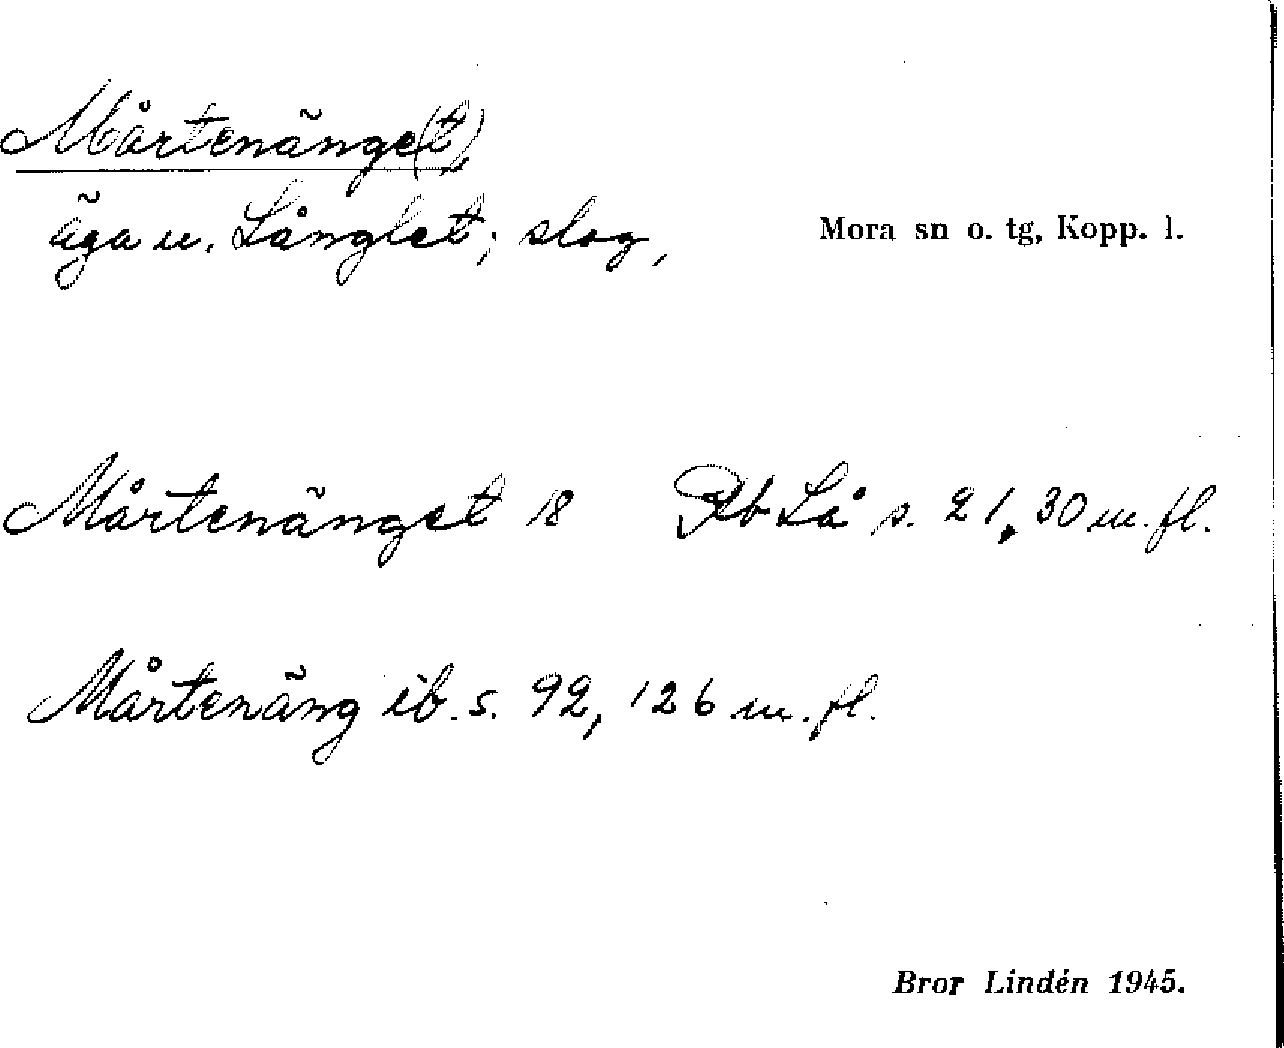 Mårtenänge(t)
äga u. Långlet; slog,
Mora sn o. tg, Kopp. l.
Mårtenänget 18 Rb Lå s. 21, 30 m. fl.
Mårtenäng ib. s. 92, 126 m. fl.
Bror Lindén 1945.